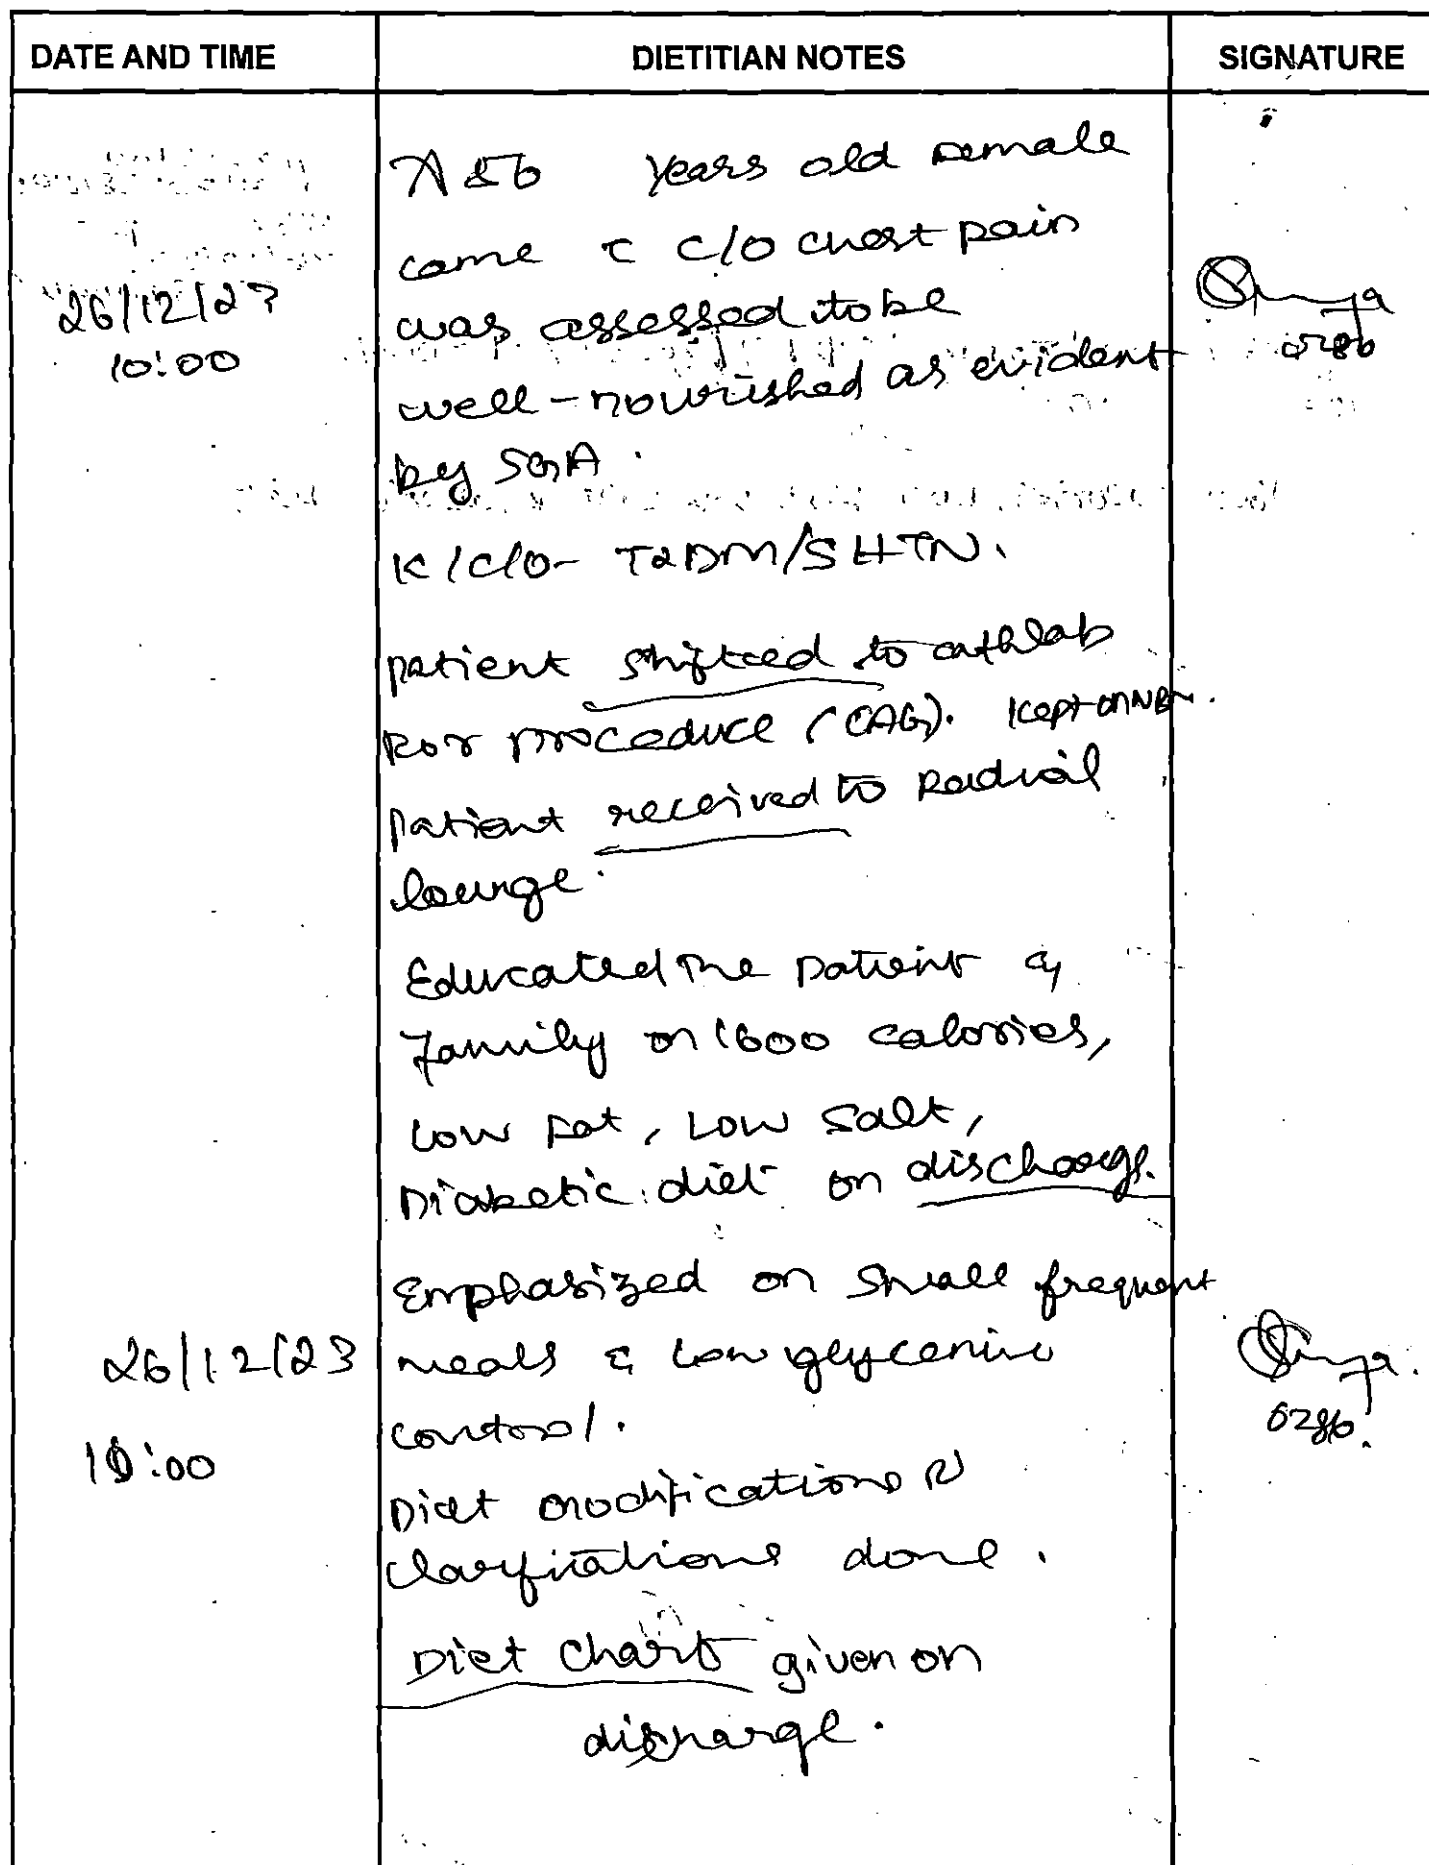 DATE AND TIME DIETITIAN NOTES SIGNATURE
A 56 years old female
came c̄ c/o chest pain
26/12/23 was assessed to be
10:00 well-nourished as evident 0286
by SGA.
K/C/O- T2DM/SHTN.
patient shifted to cathlab
for procedure (CAG). Kept on NBM.
patient received to Radial
lounge.
Educated the patient &
family on 1600 calories,
Low fat, Low salt,
Diabetic diet on discharge.
Emphasized on small frequent
26/12/23 meals & low glycemic
control. 0286.
Diet modifications &
clarifications done.
Diet chart given on
discharge.